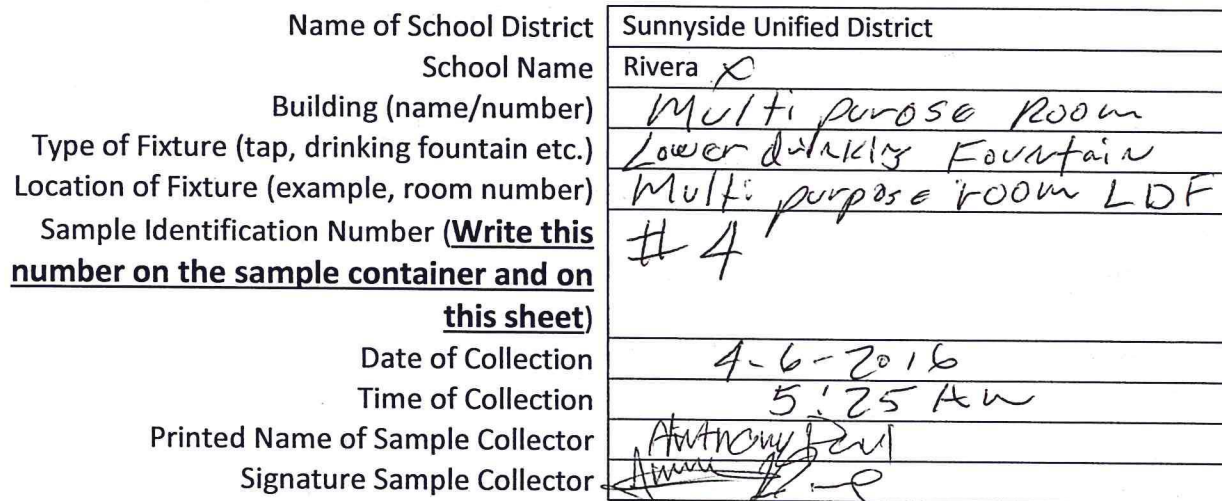 Name of School District Sunnyside Unified District
School Name Rivera X
Building (name/number) Multi purose Room
Type of Fixture (tap, drinking fountain etc.) Lower drinking Fountain
Location of Fixture (example, room number) Multi purpose room LDF
Sample Identification Number (Write this # 4
number on the sample container and on
this sheet)
Date of Collection 4-6-2016
Time of Collection 5:25 AM
Printed Name of Sample Collector Anthony
Signature Sample Collector